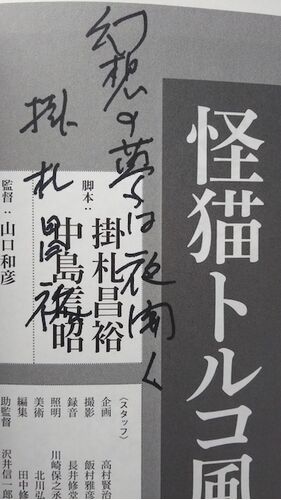 怪猫トルコ風
幻想の夢は夜開く
掛札昌裕
脚本:掛札昌裕
中島信昭
監督:山口和彦
〈スタッフ〉
企画 高村賢治
撮影 飯村雅彦
録音 長井修堂
照明 川崎保之丞
美術 北川弘
編集 田中修
助監督 沢井信一郎